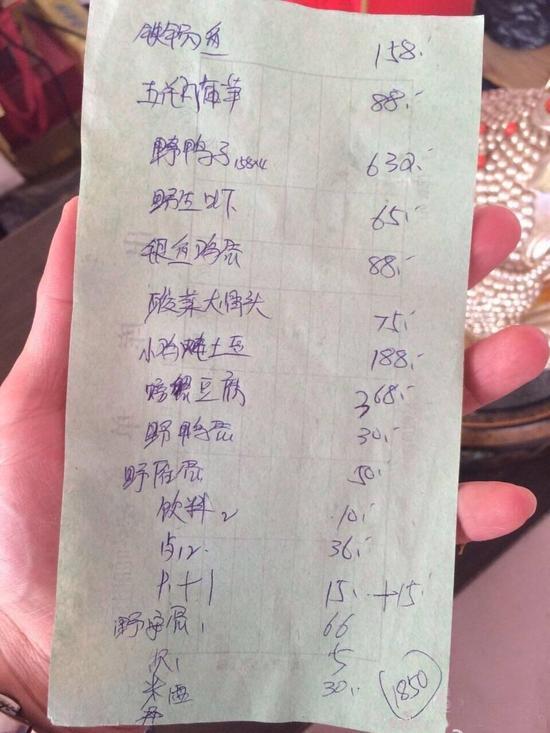 铁锅鱼 158.-
五花肉 88.-
野鸭子158×4 632.-
野生 65.-
银鱼鸡蛋 88.-
酸菜大骨头 75.-
小鸡炖土豆 188.-
螃蟹豆腐 368.-
野鸭蛋 30.-
野 蛋 50.-
饮料2 10.-
12. 36.-
1+1 15.- +15.-
野 蛋1 66
1 5
米酒 30.- 1850